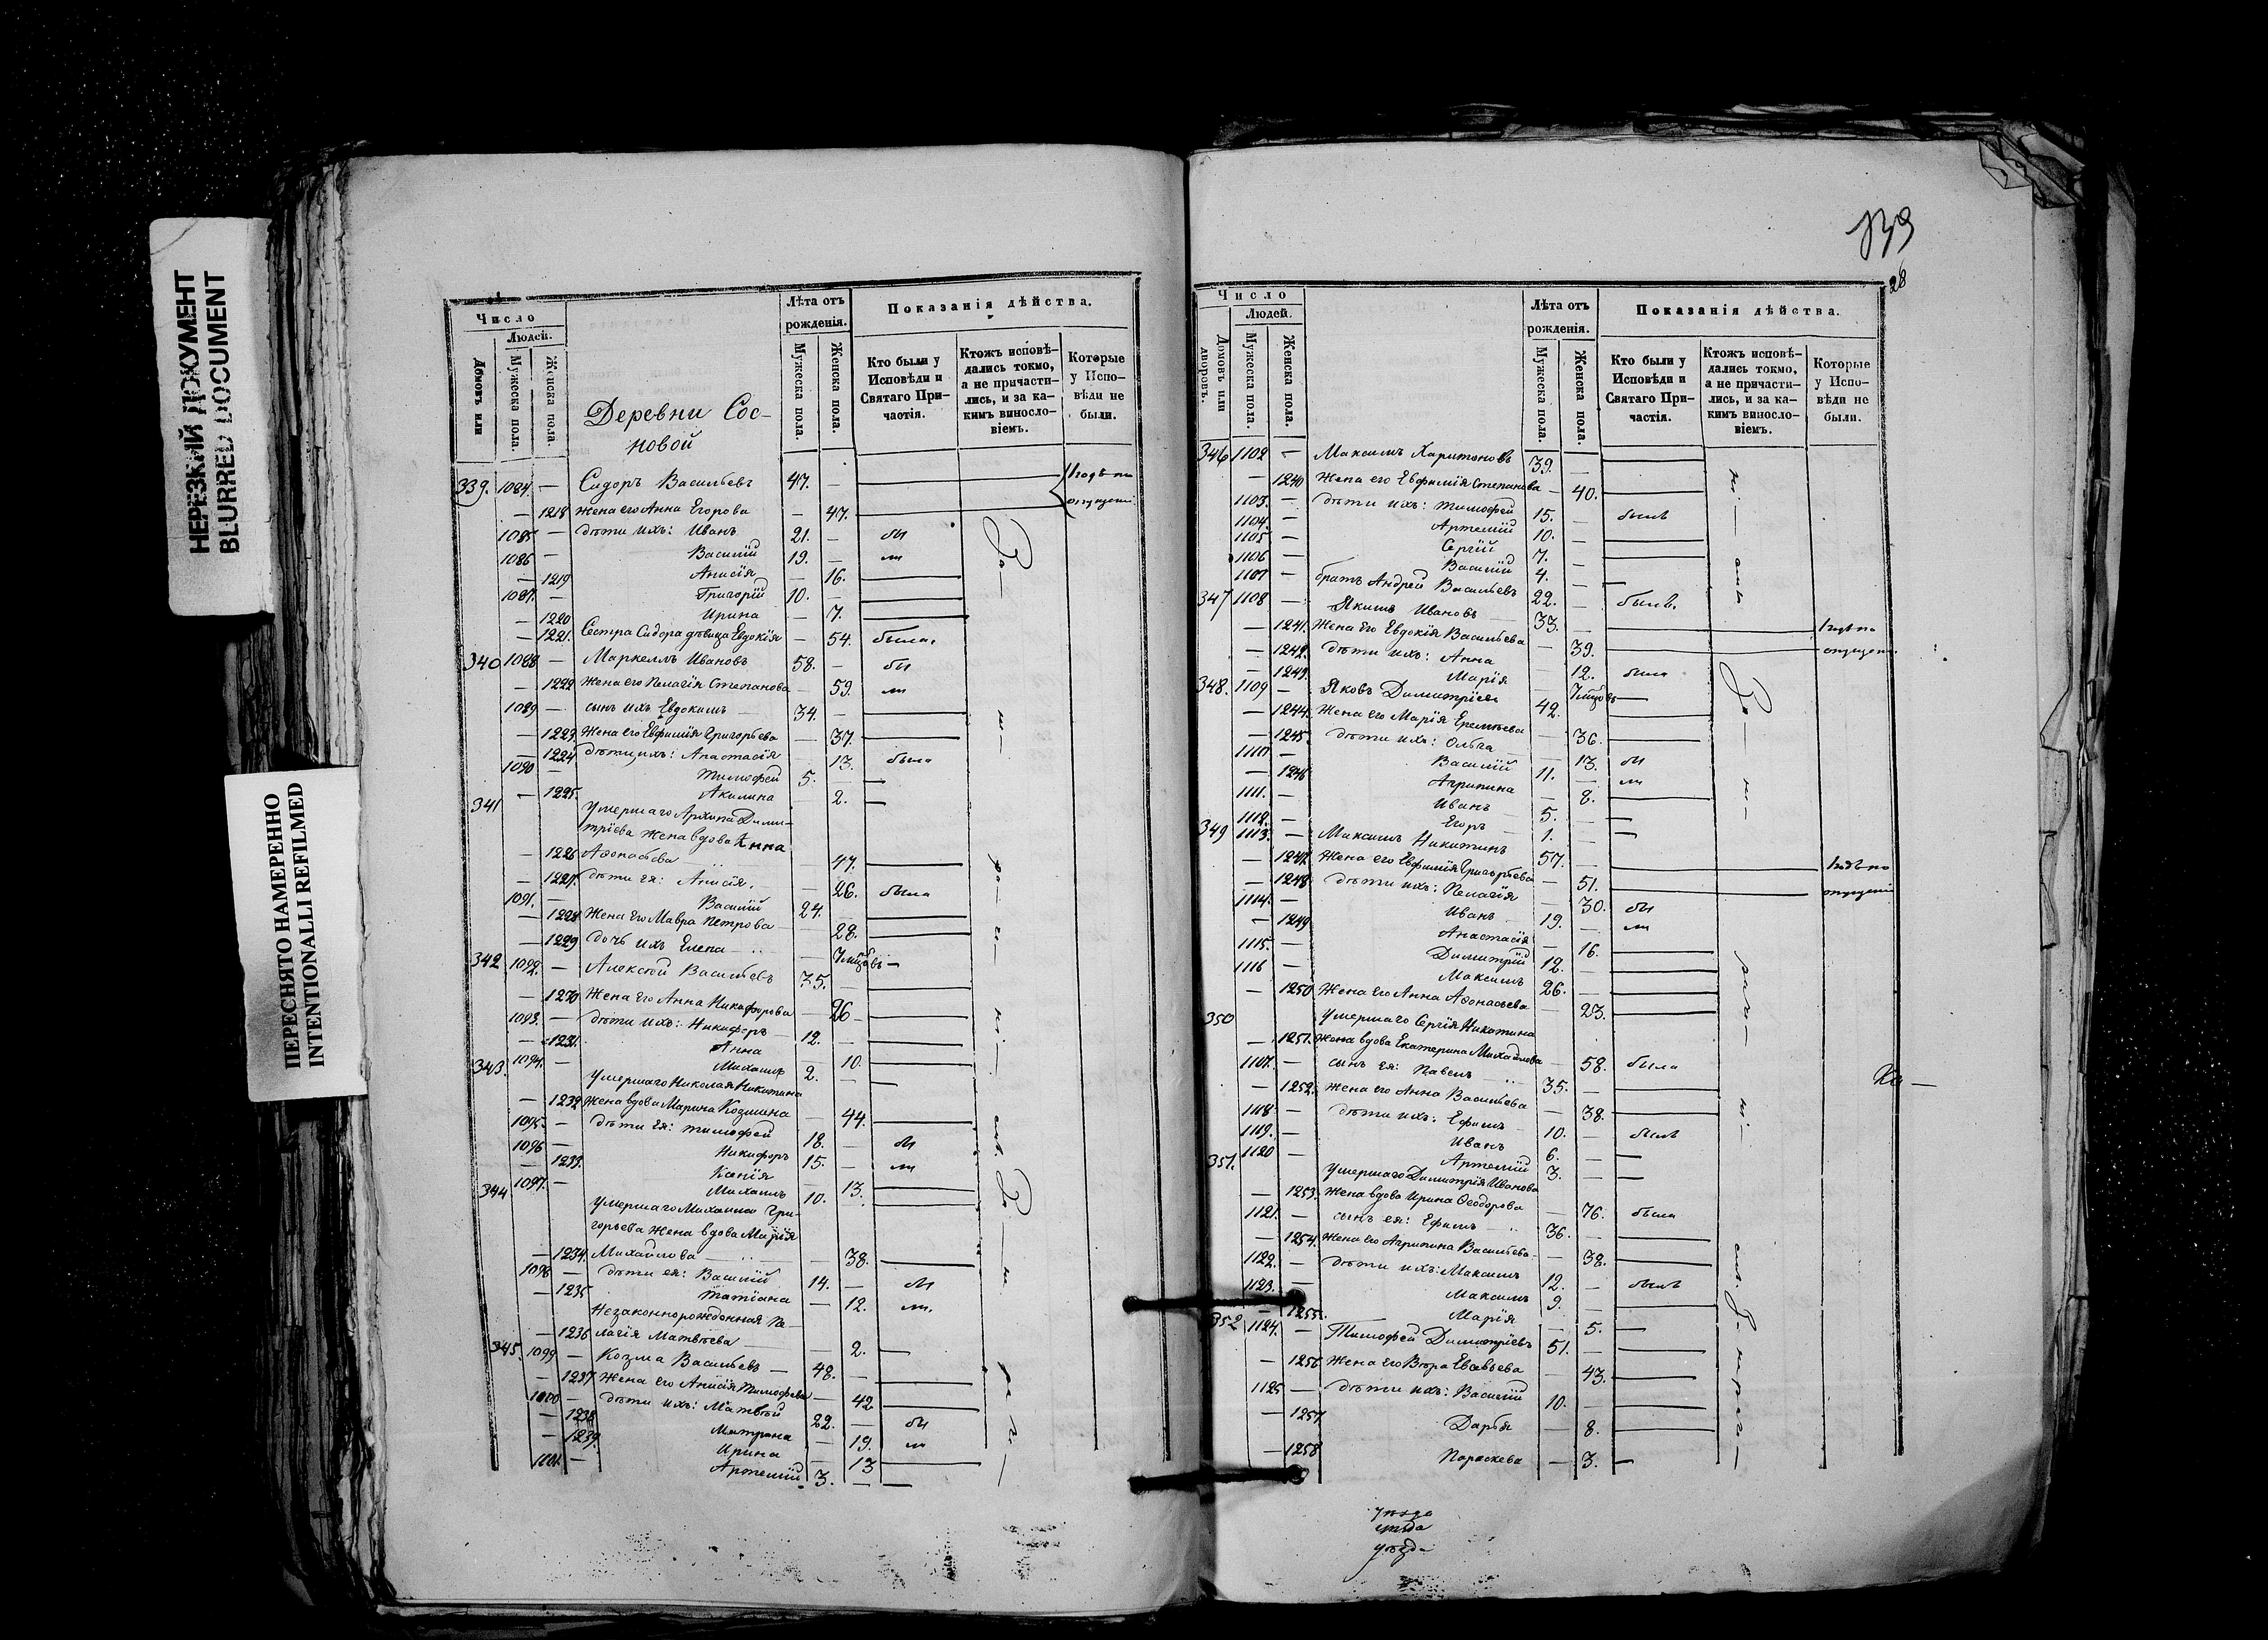 НЕРЕЗКИЙ ДОКУМЕНТ
BLURRED DOCUMENT
ПЕРЕСНЯТО НАМЕРЕННО
INTENTIONALLI REFILMED
Число
Людей.
Домовъ или
Мужеска пола.
Женска пола.
Лѣта отъ
рожденія.
Мужеска пола.
Женска пола.
Показанія дѣйства.
Кто были у
Исповѣди и
Святаго При-
частія.
Ктожъ исповѣ-
дались токмо,
а не причасти-
лись, и за ка-
кимъ виносло-
віемъ.
Которые
у Испо-
вѣди не
были.
Деревни Сос-
новой
339. 1084. — Сидоръ Васильевъ 47. —
— 1218 жена его Анна Егорова — 47.
1085 — дѣти ихъ: Иванъ 21. — бы
1086 — Василій 19. — ли
— 1219 Анисія — 16.
1087. — Григорій 10. —
— 1220 Ирина — 7.
— 1221. Сестра Сидора дѣвица Евдокія — 54. была.
340 1088 — Маркеллъ Ивановъ 58. — бы
— 1222 жена его Пелагія Степанова — 59. ли
1089 — сынъ ихъ Евдокимъ 34. —
— 1223 Жена его Евфимія Григорьева — 37.
— 1224 дѣти ихъ: Анастасія — 13. была
1090 — Тимофей 5. —
— 1225. Акилина 2. —
341 Умершаго Архипа Дими-
тріева жена вдова Анна
— 1226 Аѳонасьева — 47.
— 1227. дѣти ея: Анисія. — 26. была
1091. — Василій 24.
— 1228 Жена его Мавра Петрова — 28.
— 1229 дочь ихъ Елена — 7 мцовъ —
342 1092. — Алексѣй Васильевъ 35. —
— 1230 Жена его Анна Никифорова — 26
1093. — дѣти ихъ: Никифоръ 12. —
— 1231. Анна — 10.
1094. — Михаилъ 2. —
343. Умершаго Николая Никитина
— 1232 Жена вдова Марина Козмина — 44.
1095. — дѣти ея: Тимофей 18. — бы
1096 — Никифоръ 15. — ли
— 1233. Ксенія — 13.
1097. — Михаилъ 10. —
344 Умершаго Михаила Гри-
горьева жена вдова Марія
— 1234. Михайлова — 38.
1098 — дѣти ея: Василій 14. — бы
— 1235 Татіана — 12. ли.
Незаконнорожденная Пе-
— 1236 лагія Матвѣева — 2. —
345. 1099 — Козма Васильевъ — 48. —
— 1237 Жена его Анисія Тимофеева — 42
1100 — дѣти ихъ: Матвѣй 22. — бы
— 1238 Матрона — 19. ли
— 1239. Ирина — 13
1101. — Артемій 3. —
139
28
Число
Людей.
Домовъ или
дворовъ.
Мужеска пола.
Женска пола.
Лѣта отъ
рожденія.
Мужеска пола.
Женска пола.
Показанія дѣйства.
Кто были у
Исповѣди и
Святаго При-
частія.
Ктожъ исповѣ-
дались токмо,
а не причасти-
лись, и за ка-
кимъ виносло-
віемъ.
Которые
у Испо-
вѣди не
были.
346 1102 — Максимъ Харитоновъ 39. —
— 1240 Жена его Евфимія Степанова — 40.
1103. — дѣти ихъ: Тимофей 15. — былъ
1104. — Артемій 10. —
1105 — Сергій 7. —
1106 — Василій 4. —
1107 — братъ Андрей Васильевъ 22. — былъ.
347 1108 — Якимъ Ивановъ 33. —
— 1241. Жена его Евдокія Васильева — 39.
— 1242. дѣти ихъ: Анна — 12. была
— 1243. Марія — 7 мцовъ —
348. 1109 — Яковъ Димитріевъ 42.
— 1244. Жена его Марія Еремѣева — 36.
— 1245. дѣти ихъ: Ольга — 13. бы
1110. — Василій 11. — ли
— 1246 Агрипина — 8.
1111. — Иванъ 5. —
1112. — Егоръ 1. —
349 1113. — Максимъ Никитинъ 57. —
— 1247. Жена его Евфимія Григорьева — 51.
— 1248 дѣти ихъ: Пелагія — 30. бы
1114. — Иванъ 19. — ли
— 1249 Анастасія — 16.
1115. — Димитрій 12. —
1116 — Максимъ 26. —
— 1250 Жена его Анна Аѳонасьева — 23.
350 Умершаго Сергія Никитина
— 1251. Жена вдова Екатерина Михайлова — 58. была
1117. — сынъ ея: Павелъ 35. —
— 1252. Жена его Анна Васильева — 38.
1118 — дѣти ихъ: Ефимъ 10. — былъ
1119. — Иванъ 6. —
1120 — Артемій 3. —
351. Умершаго Димитрія Иванова
— 1253. Жена вдова Ирина Ѳеодорова — 76. была
1121. — сынъ ея: Ефимъ 36. —
— 1254. Жена его Агрипина Васильева — 38.
1122. — дѣти ихъ: Максимъ 12. — былъ
1123. — Максимъ 9. —
— 1255. Марія — 5. —
352 1124. — Тимофей Димитріевъ 51. —
— 1256 Жена его Вѣра Евсевьева — 43.
1125 — дѣти ихъ: Василій 10. —
— 1257. Дарья — 8.
— 1258 Параскева — 3. —